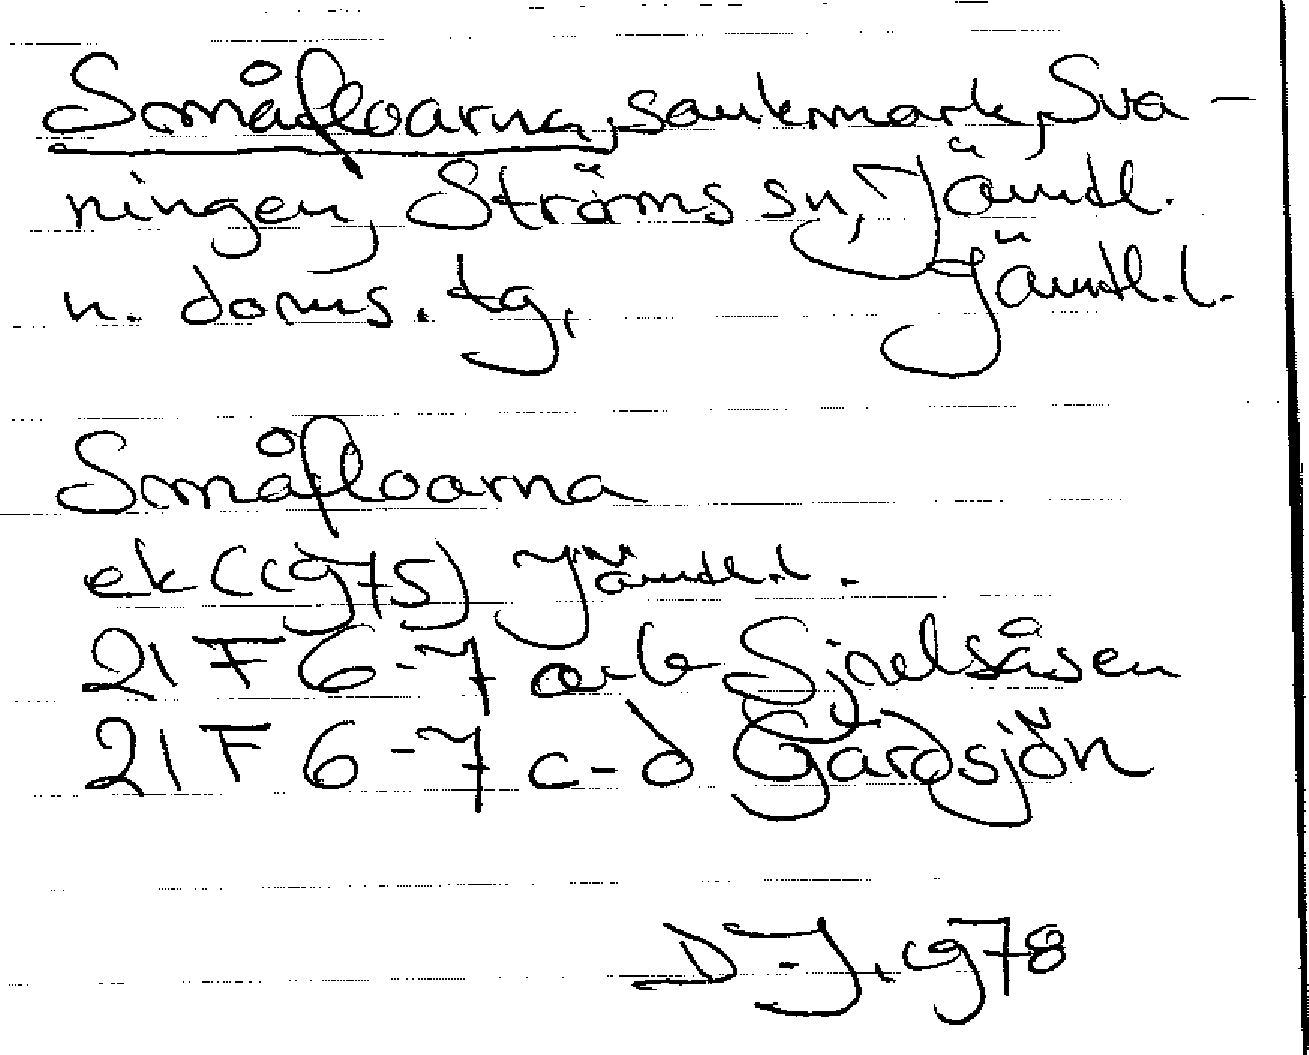 Småfloarna, sankmark, Sva-
ningen, Ströms sn, Jämtl.
n. doms. tg, Jämtl.l.
Småfloarna
ek (cg75) Jämtl.l.
21 F 6-7 a-b Sjulsåsen
21 F 6-7 c-d Gårdsjön
D-J, cg78